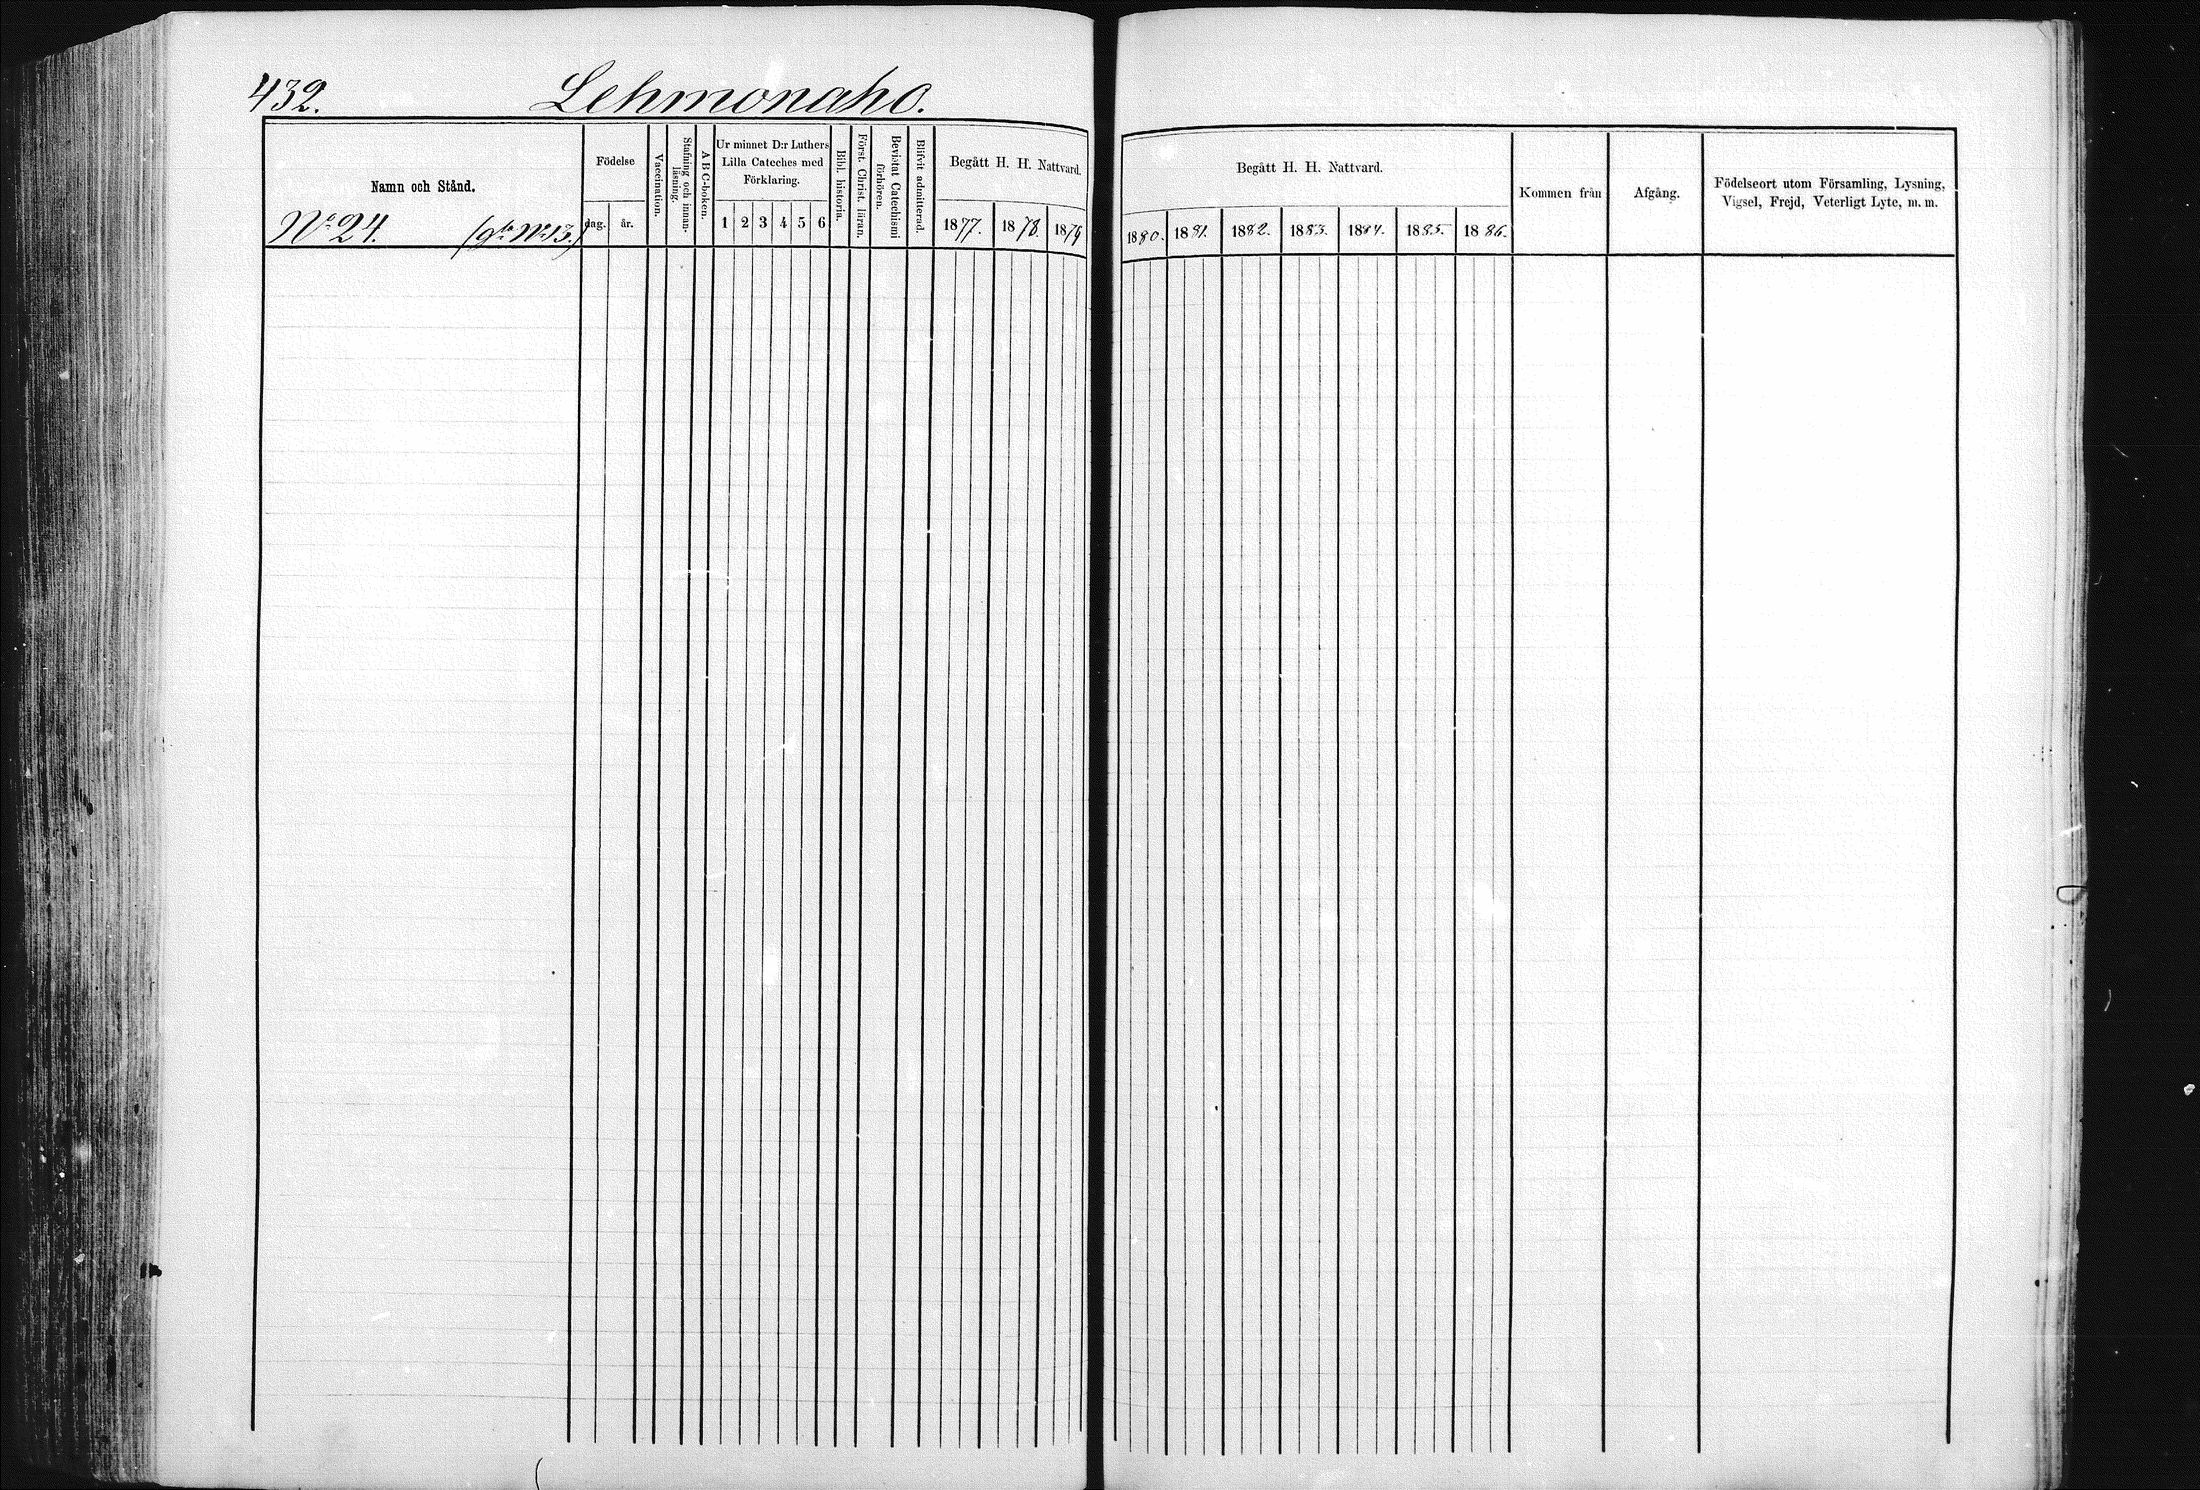 432. Lehmonaho.
Namn och Stånd.
No 24. (gla No 13.)
Födelse
dag. år.
Vaccination.
Stafning och innan-
läsning.
A B C-boken.
Ur minnet D:r Luthers
Lilla Cateches med
Förklaring.
1 2 3 4 5 6
Bibl. historia.
Först. Christ. läran.
Bevistat Catechismi
förhören.
Blifvit admitterad.
Begått H. H. Nattvard.
1877. 1878. 1879
Begått H. H. Nattvard.
1880. 1881. 1882. 1883. 1884. 1885. 1886.
Kommen från
Afgång.
Födelseort utom Församling, Lysning,
Vigsel, Frejd, Veterligt Lyte, m. m.